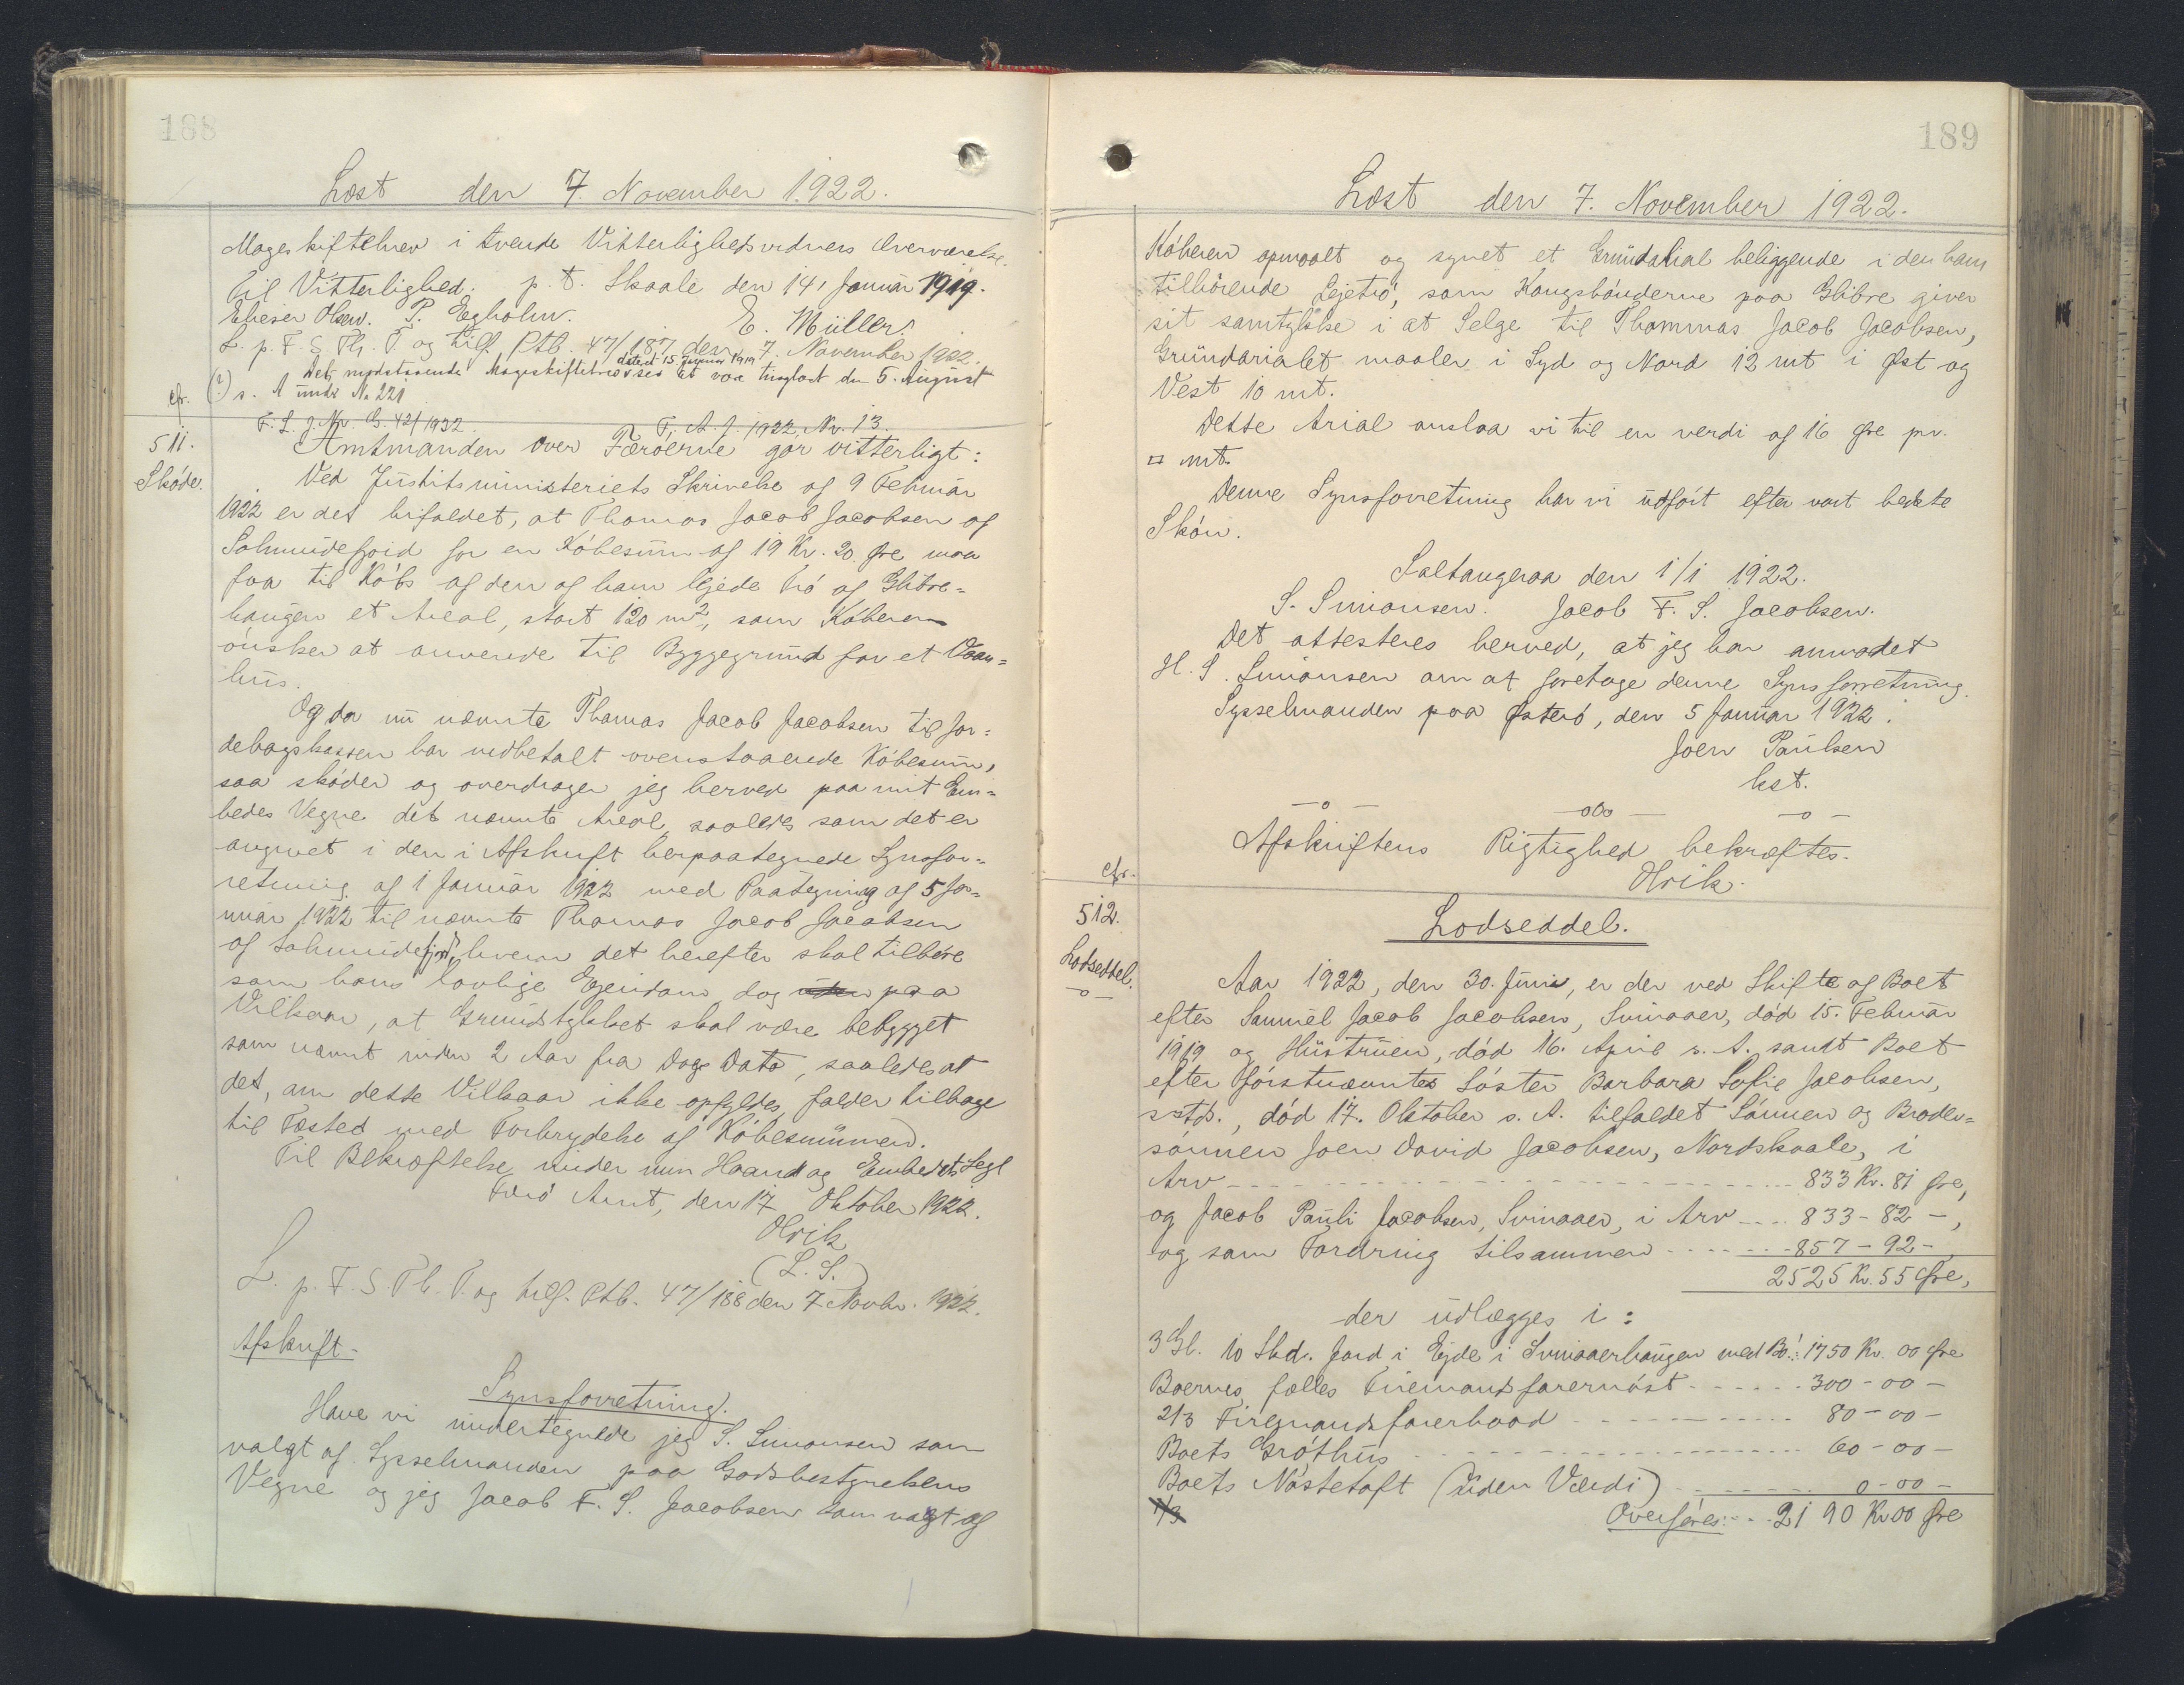 188
Læst den 7. November 1922.
Mageskiftebrev i tvende Vitterlighedsvidners Overværelse.
Til Vitterlighed. p. t. Skaale den 14, Januar 1919.
Elieser Olsen. P. Egholm. E. Müller.
L. p. F. S. Th. T. og tilf. Ptb. 47/187 den 7. November 1922.
Det nystaaende Mageskiftebrev dateret 15 Januar 1919 ses at være tinglæst den 5. August
(?) s. A under No 221
cfr.
F. L. J. Nr. B. 42/1932. F. A. J. 1922, Nr. 13.
511.
Skøde.
Amtmanden over Færøerne gør vitterligt:
Ved Justitsministeriets Skrivelse af 9 Februar
1922 er det bifaldet, at Thomas Jacob Jacobsen af
Solmundefjord for en Købesum af 19 Kr. 20. Øre maa
faa til Købs af den af ham lejede Trø af Glibre-
haugen et Areal, stort 120 m², som Køberen
ønsker at anvende til Byggegrund for et Vaan-
hus.
Og da nu nævnte Thomas Jacob Jacobsen til Jor-
debogskassen har indbetalt ovenstaaende Købesum,
saa skøder og overdrager jeg herved paa mit Em-
bedes Vegne det nævnte Areal, saaledes som det er
angivet i den i Afskrift herpaategnede Synsfor-
retning af 1 Januar 1922 med Paategning af 5 Ja-
nuar 1922 til nævnte Thomas Jacob Jacobsen
af Solmundefjord, hvem det herefter skal tilhøre
som hans lovlige Ejendom dog uden paa
Vilkaar, at Grundstykket skal være bebygget
som nævnt inden 2 Aar fra Dags Dato, saaledes at
det, om dette Vilkaar ikke opfyldes, falder tilbage
til Fæsted med Forbrydelse af Købesummen.
Til Bekræftelse under min Haand og Embedets Segl
Færø Amt, den 17 Oktober 1922.
Olrik
(L. S.)
L. p. F. S. Th. T. og tilf. Ptb. 47/188 den 7 Novbr. 1922.
Afskrift.
Synsforretning.
Have vi undertegnede jeg S. Simonsen som
valgt af Sysselmanden paa Godsbestyrelsens
Vegne og jeg Jacob F. S. Jacobsen som valgt af
189
Læst den 7. November 1922.
Køberen opmaalt og synet et Grundarial beliggende i den ham
tilhørende Lejetrø, som Kongsbønderne paa Glibre giver
sit samtykke i at Selge til Thommas Jacob Jacobsen,
Grundarialet maaler i Syd og Nord 12 mt i Øst og
Vest 10 mt.
Dette Arial anslaa vi til en verdi af 16 Øre pr.
□ mt.
Denne Synsforretning har vi udført efter vort bedste
Skøn.
Saltangeraa den 1/1 1922.
S. Simonsen. Jacob F. S. Jacobsen.
Det attesteres herved, at jeg har anmodet
H. S. Simonsen om at foretage denne Synsforretning.
Sysselmanden paa Østerø, den 5 Januar 1922.
Joen Paulsen
kst.
—o— —oOo— —o—
Afskriftens Rigtighed bekræftes.
Olrik.
cfr.
512.
Lodseddel.
—o—
Lodseddel.
Aar 1922, den 30. Juni, er der ved Skifte af Boet
efter Samuel Jacob Jacobsen, Svinaaer, død 15. Februar
1919 og Hustruen, død 16. April s. A. samt Boet
efter førstnævntes Søster Barbara Sofie Jacobsen,
sstds., død 17. Oktober s. A. tilfaldet Sønnen og Broder-
sønnen Joen David Jacobsen, Nordskaale, i
Arv - - - - - 833 Kr. 81 Øre,
og Jacob Pauli Jacobsen, Svinaaer, i Arv - - - 833 - 82 -,
og som Fordring tilsammen - - - - 857 - 92 -,
2525 Kr. 55 Øre,
der udlægges i:
3 Gl. 10 Skd. Jord i Ejde i Svinaaerhaugen med Bø: 1750 Kr. 00 Øre
Boernes fælles Firemandsfarernøst - - - - 300 - 00 -
2/3 Firemandsfarerbaad - - - - 80 - 00 -
Boets Gróthus - - - - 60 - 00 -
Boets Nøstetoft (Uden Værdi) - - - - 0 - 00 -
1/3 Overføres: - - - 2190 Kr 00 Øre